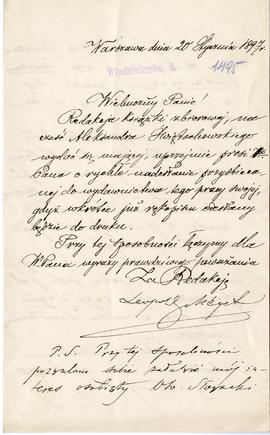 Warszawa dnia 20 Stycznia 1897 r.
Włodzimierska, 6.
1495
Wielmożny Panie!
Redakcja książki zbiorowej, na
cześć Aleksandra Świętochowskiego
wydać się mającej, uprzejmie prosi W
Pana o rychłe nadesłanie przyobieca
nej do wydawnictwa tego pracy swojej,
gdyż wkrótce już rękopism oddany
będzie do druku.
Przy tej sposobności łączymy dla
WPana wyrazy prawdziwego poważania
Za Redakcję
Leopold Méyet
P. S. Przy tej sposobności
pozwalam sobie załatwić mój in
teres osobisty.